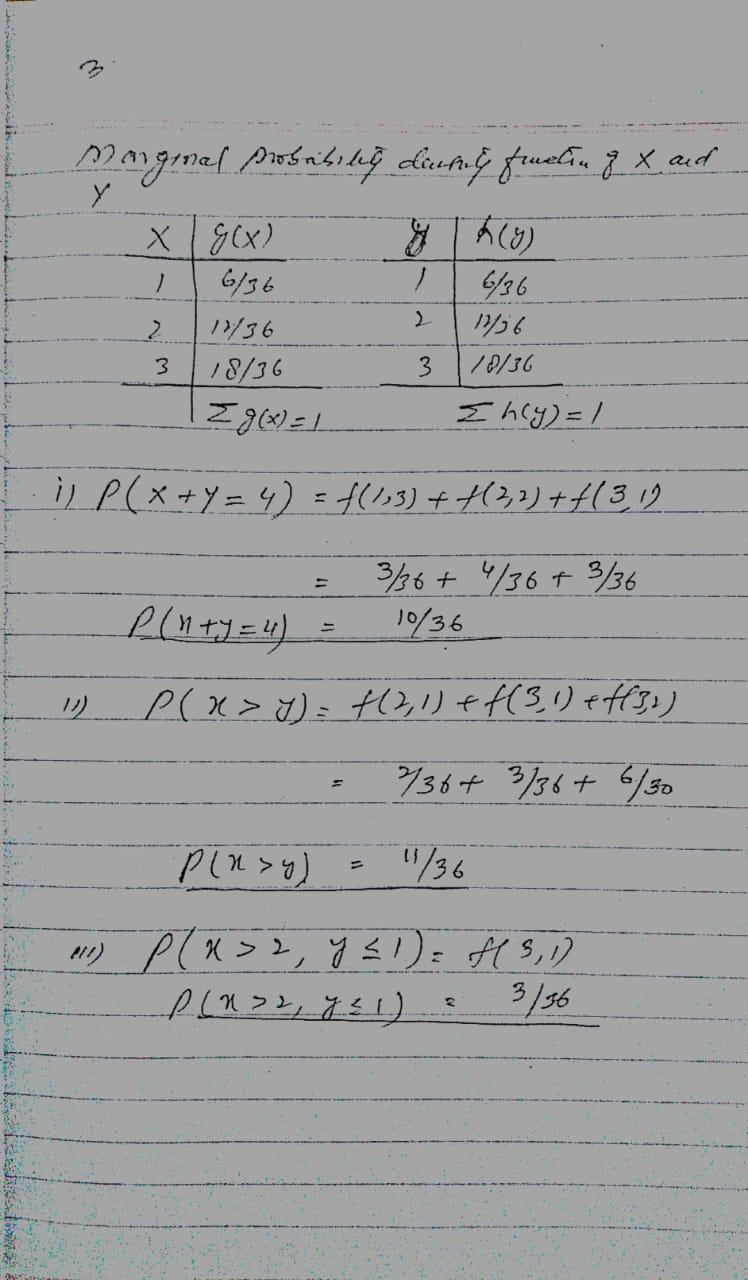 3
Marginal probability density function of X and
Y
X | g(x) y | h(y)
1 | 6/36 1 | 6/36
2 | 12/36 2 | 12/36
3 | 18/36 3 | 18/36
Σ g(x) = 1 Σ h(y) = 1
i) P(X + Y = 4) = f(1,3) + f(2,2) + f(3,1)
= 3/36 + 4/36 + 3/36
P(x+y=4) = 10/36
ii) P(x > y) = f(2,1) + f(3,1) + f(3,2)
= 2/36 + 3/36 + 6/30
P(x > y) = 11/36
iii) P(x > 2, y ≤ 1) = f(3,1)
P(x > 2, y ≤ 1) = 3/36